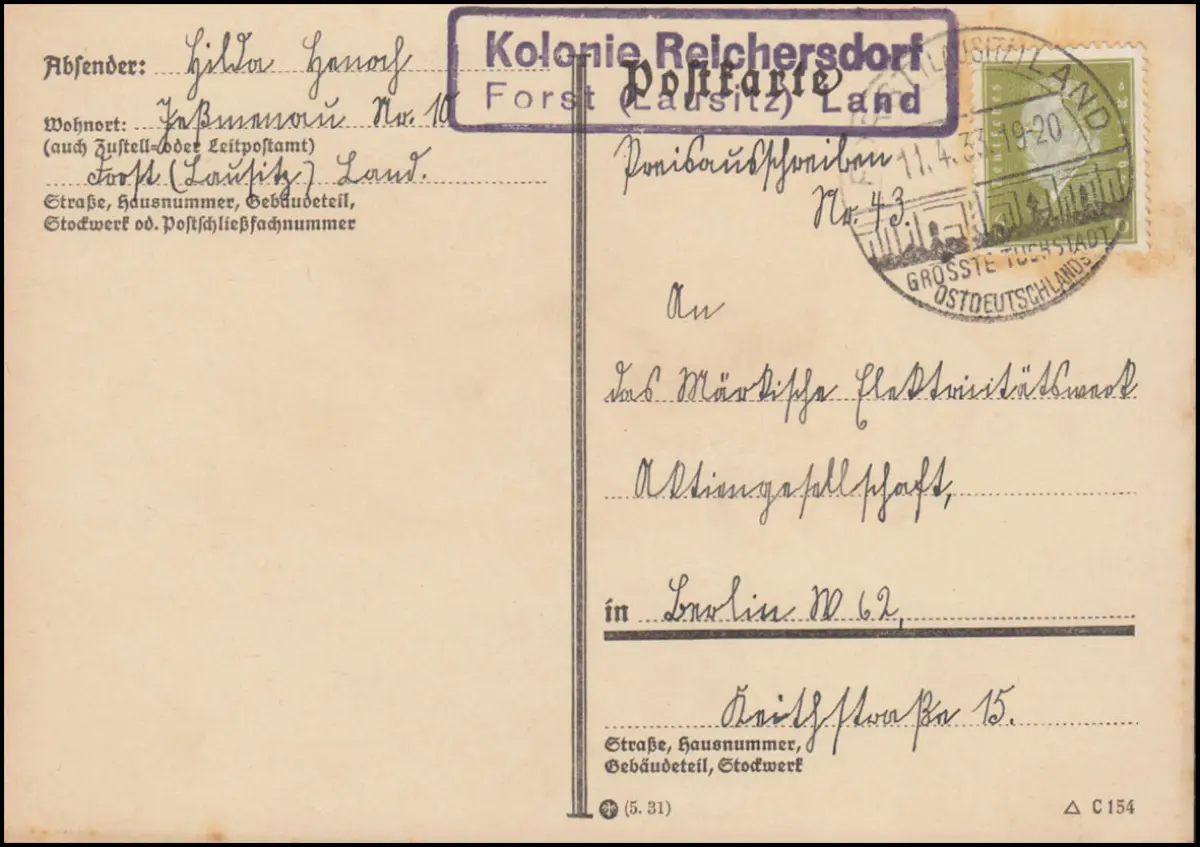 Absender: Hilda Henoch
Wohnort: Jeßmenau Nr. 10
(auch Zustell- oder Leitpostamt)
Forst (Lausitz) Land.
Straße, Hausnummer, Gebäudeteil,
Stockwerk od. Postschließfachnummer
Kolonie Reichersdorf
Forst (Lausitz) Land
Postkarte
(LAUSITZ) LAND
11.4.33.19-20
GRÖSSTE TUCHSTADT
OSTDEUTSCHLANDS
Preisausschreiben
Nr. 43.
An
das Märkische Elektrizitätswerk
Aktiengesellschaft,
in Berlin W 62,
Keithstraße 15.
Straße, Hausnummer,
Gebäudeteil, Stockwerk
(5. 31)
C 154